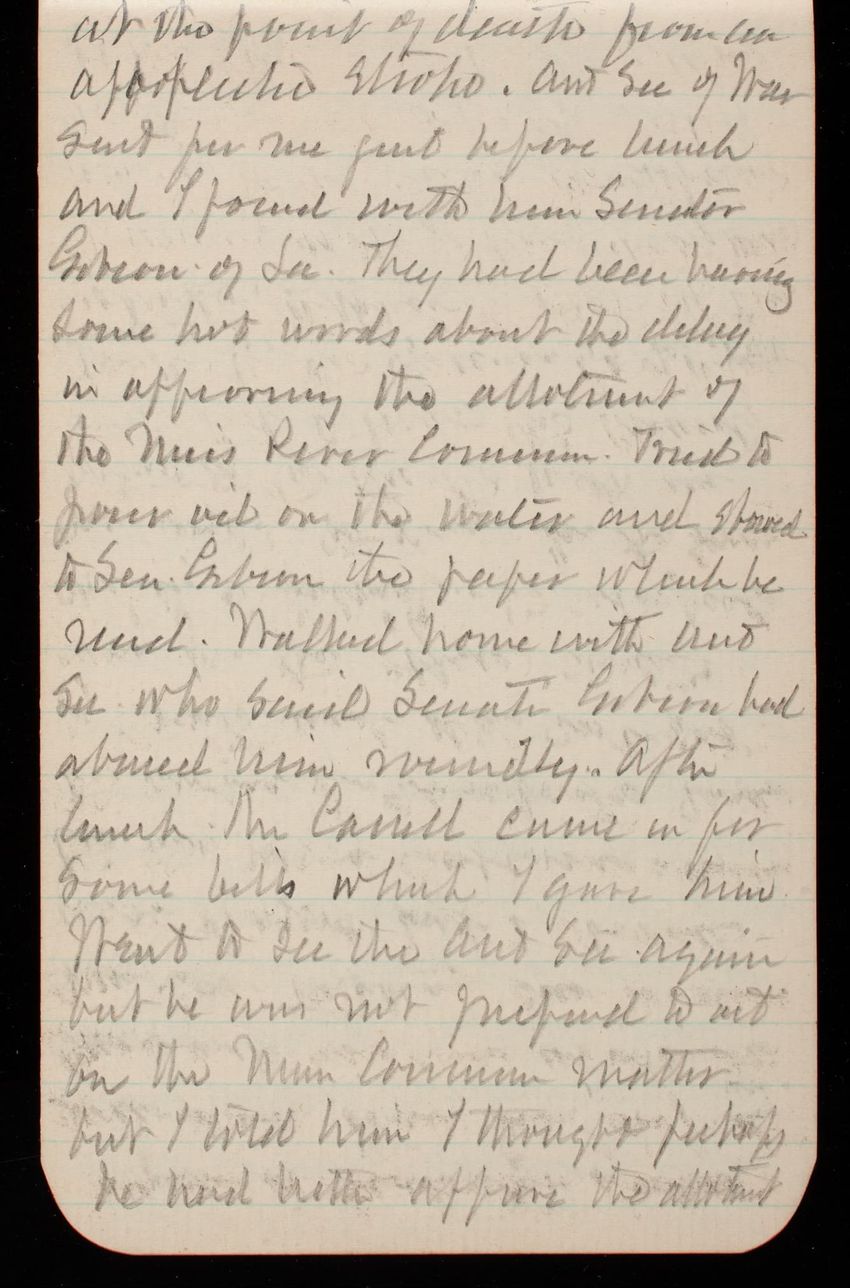 at the point of death from an
apoplectic stroke. Asst Sec of War
sent for me just before lunch
and I found with him Senator
Gibson of La. They had been having
some hot words about the delay
in approving the allotment of
the Miss River Common. Tried to
pour oil on the water and showed
to Sen. Gibson the paper which he
read. Walked home with Asst
Sec who said Senator Gibson had
abused him roundly. After
lunch Mr Casnell came in for
some bills which I gave him
Went to see the Asst Sec again
but he was not prepared to act
on the Miss Common matter
but I told him I thought perhaps
he had better approve the allotment